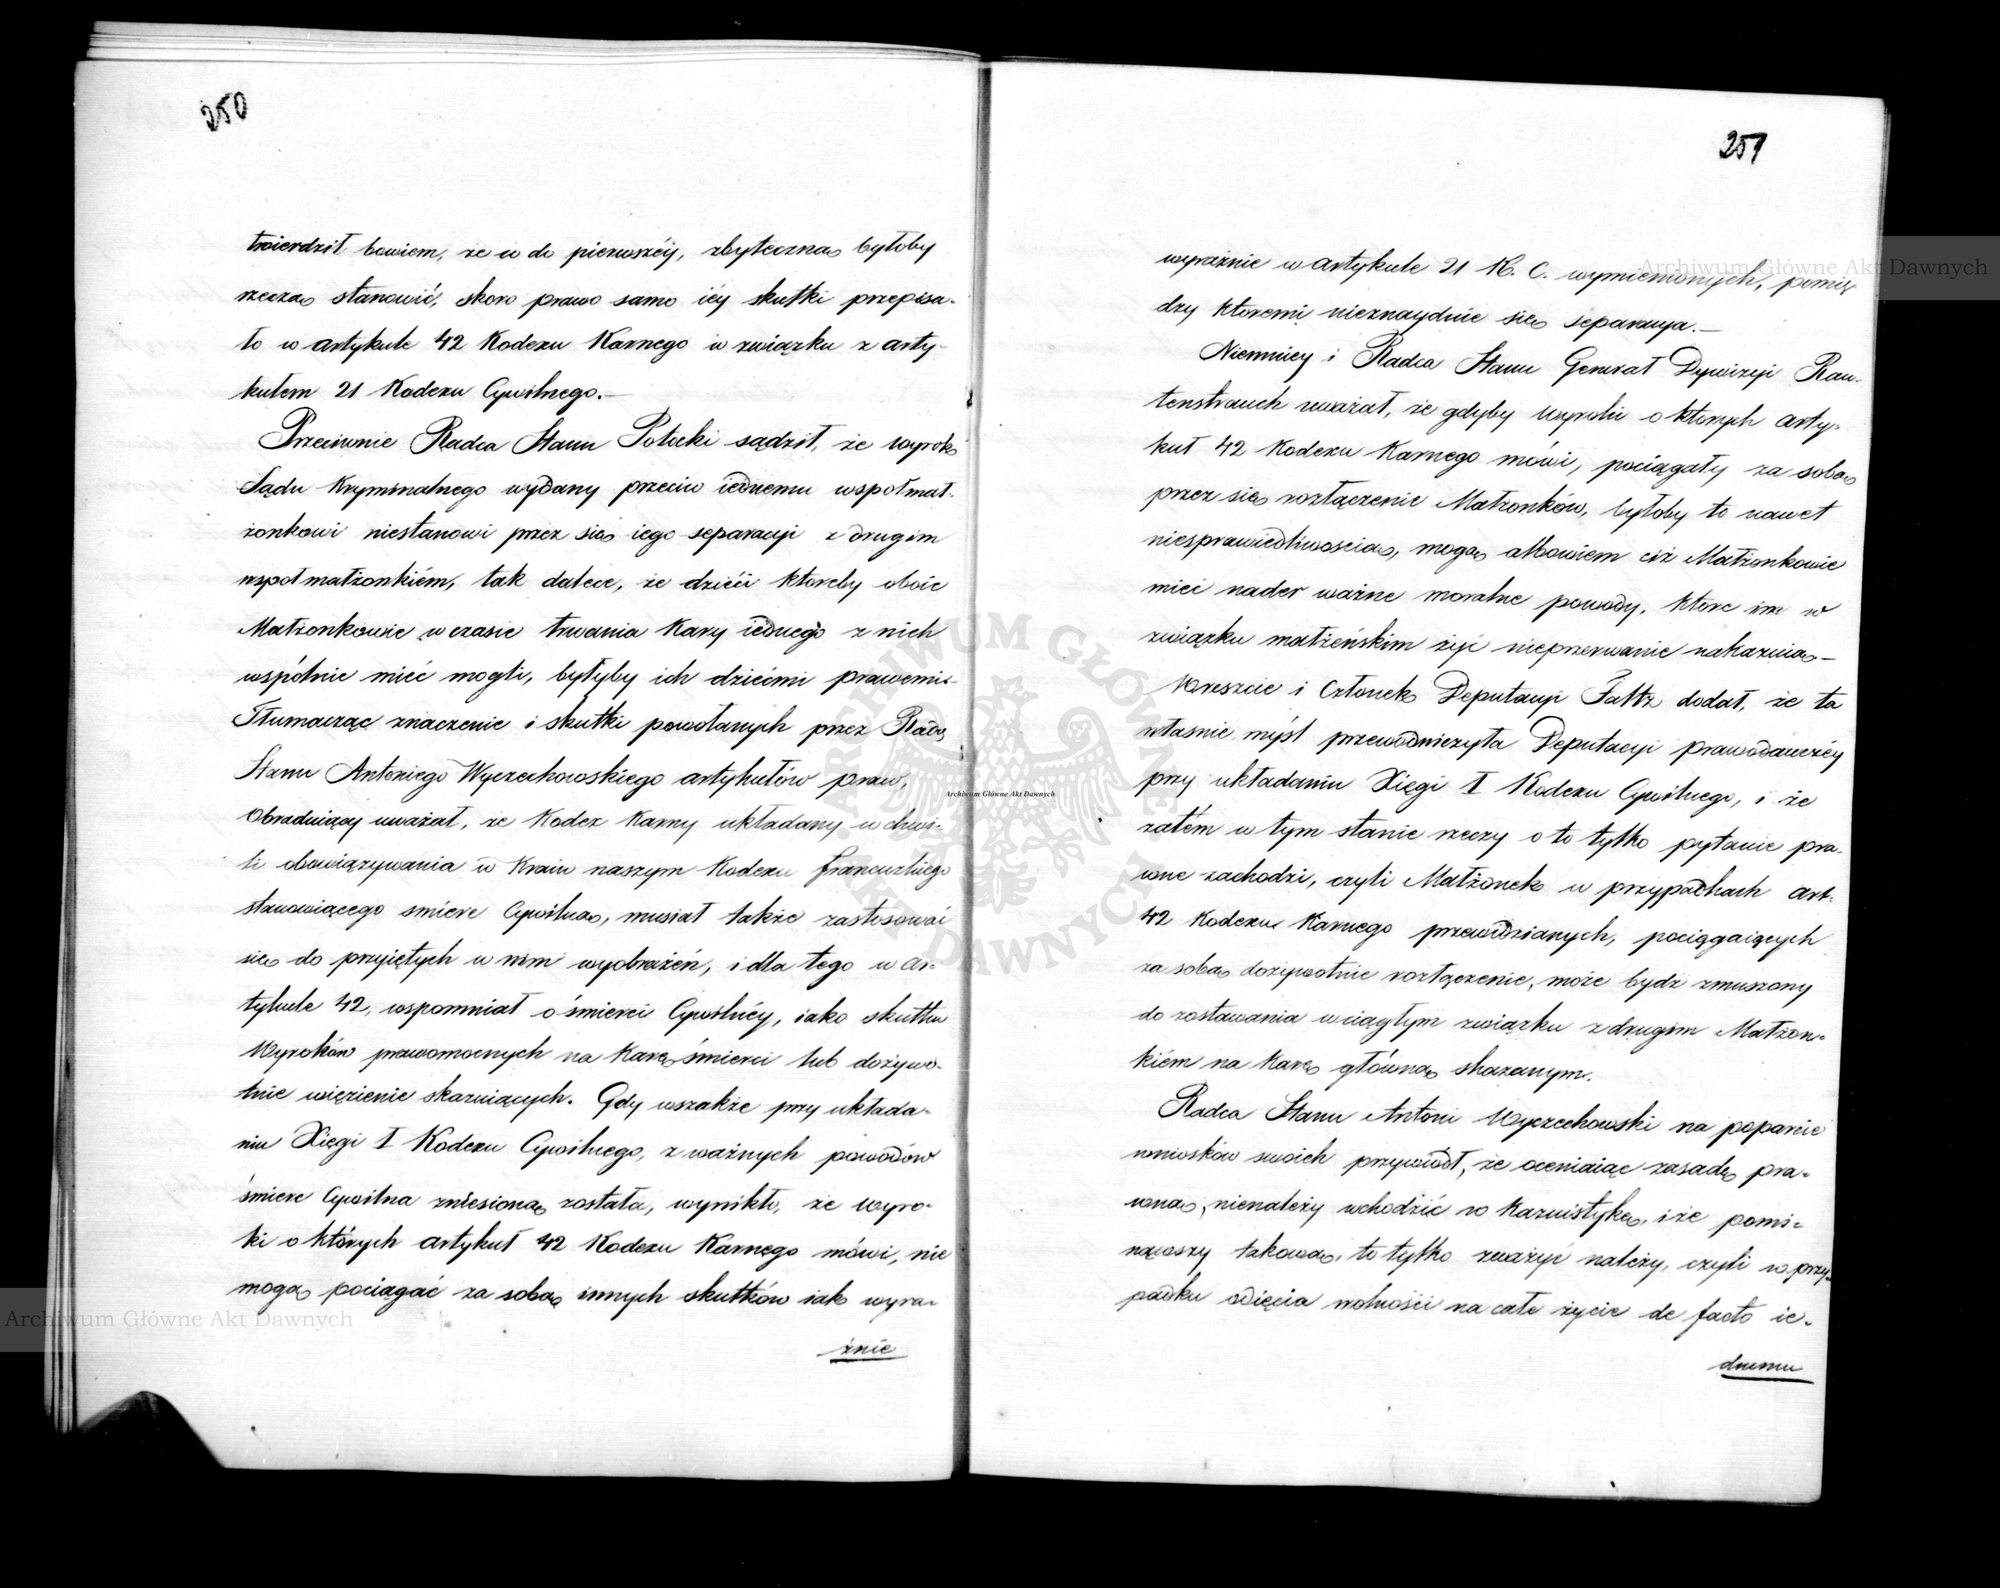 250
twierdził bowiem, że co do pierwszéy, zbyteczną byłoby
rzeczą stanowić, skoro prawo samo iéy skutki przepisa-
ło w artykule 42 Kodexu Karnego w związku z arty-
kułem 21 Kodexu Cywilnego.—
Przeciwnie Radca Stanu Potocki sądził, że wyrok
Sądu Kryminalnego wydany przeciw iednemu współmał-
żonkowi niestanowi przez się iego separacyi z drugim
współmałżonkiém, tak dalece, że dziéci któreby oboie
Małżonkowie w czasie trwania Kary iednego z nich
wspólnie mieć mogli, byłyby ich dziećmi prawemi.
Tłumacząc znaczenie i skutki powołanych przez Radcę
Stanu Antoniego Wyczechowskiego artykułów praw,
Obraduiący uważał, że Kodex Karny układany w chwi-
li obowiązywania w Kraiu naszym Kodexu francuzkiego
stanowiącego śmierć Cywilną, musiał także zastosować
się do przyiętych w nim wyobrażeń, i dla tego w ar-
tykule 42, wspomniał o śmierci Cywilnéy, iako skutku
Wyroków prawomocnych na Karę śmierci lub dożywo-
tnie więzienie skazuiących. Gdy wszakże przy układa-
niu Xięgi I Kodexu Cywilnego, z ważnych powodów
śmierć Cywilna zniesioną została, wynikło, że wyro-
ki o których artykuł 42 Kodexu Karnego mówi, nie
mogą pociągać za sobą innych skutków iak wyra-
źnie
251
wyraźnie w artykule 21 K. C. wymienionych, pomię-
dzy któremi nieznayduie się separacya.—
Niemniéy i Radca Stanu Generał Dywizyi Rau-
tenstrauch uważał, że gdyby wyroki o których arty-
kuł 42 Kodexu Karnego mówi, pociągały za sobą
przez się rozłączenie Małżonków, byłoby to nawet
niesprawiedliwością, mogą albowiem ciż Małżonkowie
mieć nader ważne moralne powody, które im w
związku małżeńskim żyć nieprzerwanie nakazuią—
Wreszcie i Członek Deputacyi Faltz dodał, że ta
właśnie myśl przewodniczyła Deputacyi prawodawczéy
przy układaniu Xięgi I Kodexu Cywilnego, i że
zatém w tym stanie rzeczy o to tylko pytanie pra-
wne zachodzi, czyli Małżonek w przypadkach art.
42 Kodexu Karnego przewidzianych, pociągaiących
za sobą dożywotnie rozłączenie, może bydź zmuszony
do zostawania w ciągłym związku z drugim Małżon-
kiém na Karę główną skazanym.
Radca Stanu Antoni Wyczechowski na poparcie
wniosków swoich przywiódł, że oceniaiąc zasadę pra-
wną, nienależy wchodzić w Kazuistykę, i że pomi-
nąwszy takową, to tylko zważyć należy, czyli w przy-
padku odięcia wolności na całe życie de facto ie-
dnemu
Archiwum Główne Akt Dawnych
Archiwum Główne Akt Dawnych
Archiwum Główne Akt Dawnych
ARCHIWUM GŁÓWNE AKT DAWNYCH